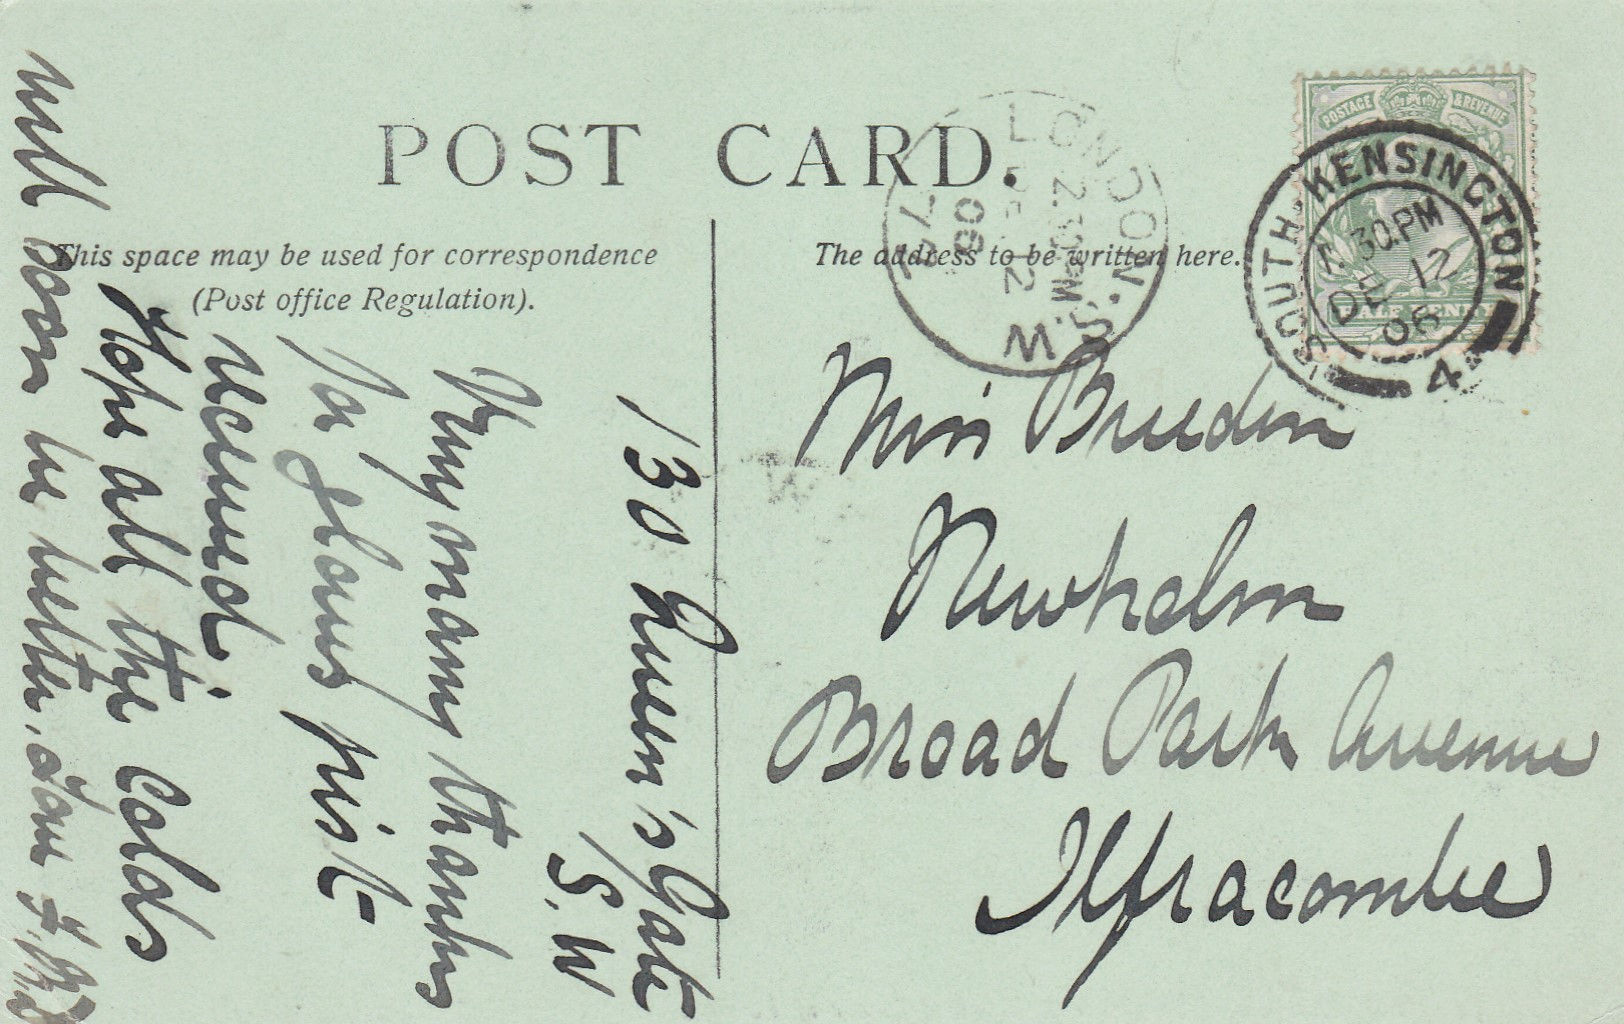 POST CARD.
This space may be used for correspondence
(Post office Regulation).
The address to be written here.
POSTAGE & REVENUE
HALF PENNY
SOUTH·KENSINGTON
1.30.PM
DE 12
06
4
LONDON.S.W
2.30PM
DE 12
06
74
Miss Breedon
Newholm
Broad Park Avenue
Ilfracombe
130 Queen's Gate
S.W
Very many thanks
for gloves just
received.
Hope all the colds
will soon be better. Love